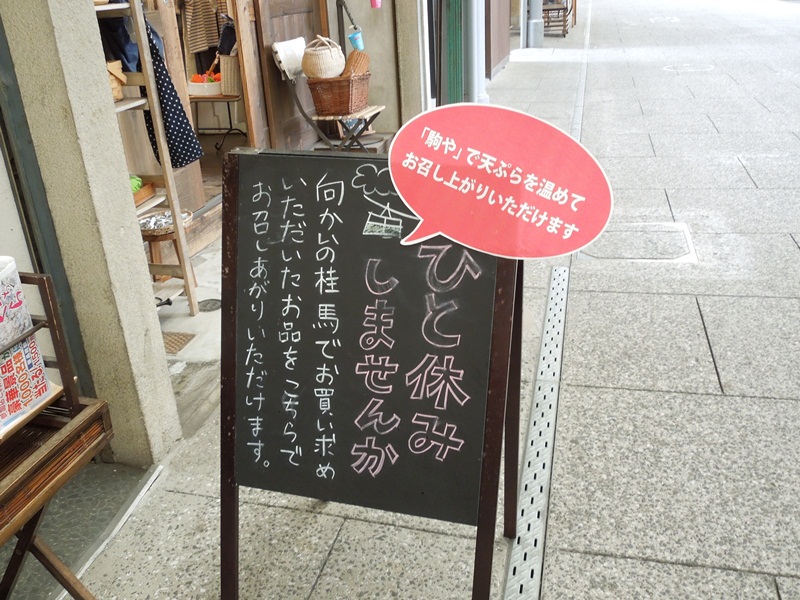 「駒や」で天ぷらを温めて
お召し上がりいただけます
ひと休み
しませんか
向かいの桂馬でお買い求め
いただいたお品をこちらで
お召しあがりいただけます。